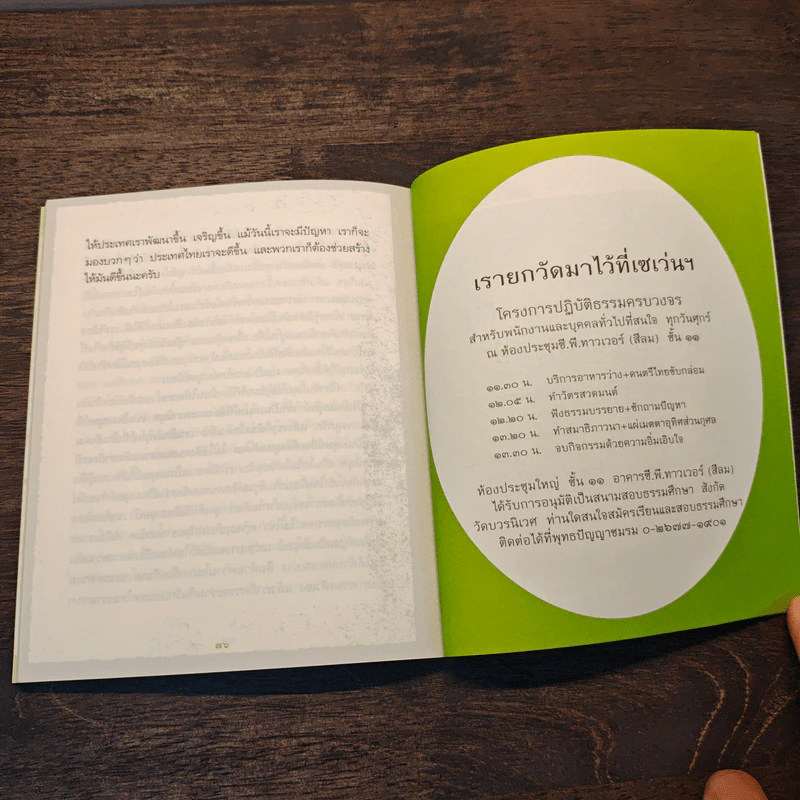 ให้ประเทศเราพัฒนาขึ้น เจริญขึ้น แม้วันนี้เราจะมีปัญหา เราก็จะ
มองบวกๆ ว่า ประเทศไทยเราจะดีขึ้น และพวกเราก็ต้องช่วยสร้าง
ให้มันดีขึ้นนะครับ
๗๖
เรายกวัดมาไว้ที่เซเว่นฯ
โครงการปฏิบัติธรรมครบวงจร
สำหรับพนักงานและบุคคลทั่วไปที่สนใจ ทุกวันศุกร์
ณ ห้องประชุมซี.พี.ทาวเวอร์ (สีลม) ชั้น ๑๑
๑๑.๓๐ น. บริการอาหารว่าง+ดนตรีไทยขับกล่อม
๑๒.๐๕ น. ทำวัตรสวดมนต์
๑๒.๒๐ น. ฟังธรรมบรรยาย+ซักถามปัญหา
๑๓.๒๐ น. ทำสมาธิภาวนา+แผ่เมตตาอุทิศส่วนกุศล
๑๓.๓๐ น. จบกิจกรรมด้วยความอิ่มเอิบใจ
ห้องประชุมใหญ่ ชั้น ๑๑ อาคารซี.พี.ทาวเวอร์ (สีลม)
ได้รับการอนุมัติเป็นสนามสอบธรรมศึกษา สังกัด
วัดบวรนิเวศ ท่านใดสนใจสมัครเรียนและสอบธรรมศึกษา
ติดต่อได้ที่พุทธปัญญาชมรม ๐-๒๖๗๗-๑๙๐๑